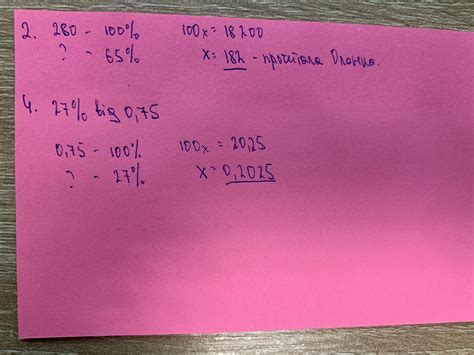 2. 280 - 100% 100x = 18200
? - 65% x = 182 - прочитала Оленка.
4. 27% від 0,75
0,75 - 100% 100x = 20,25
? - 27% x = 0,2025